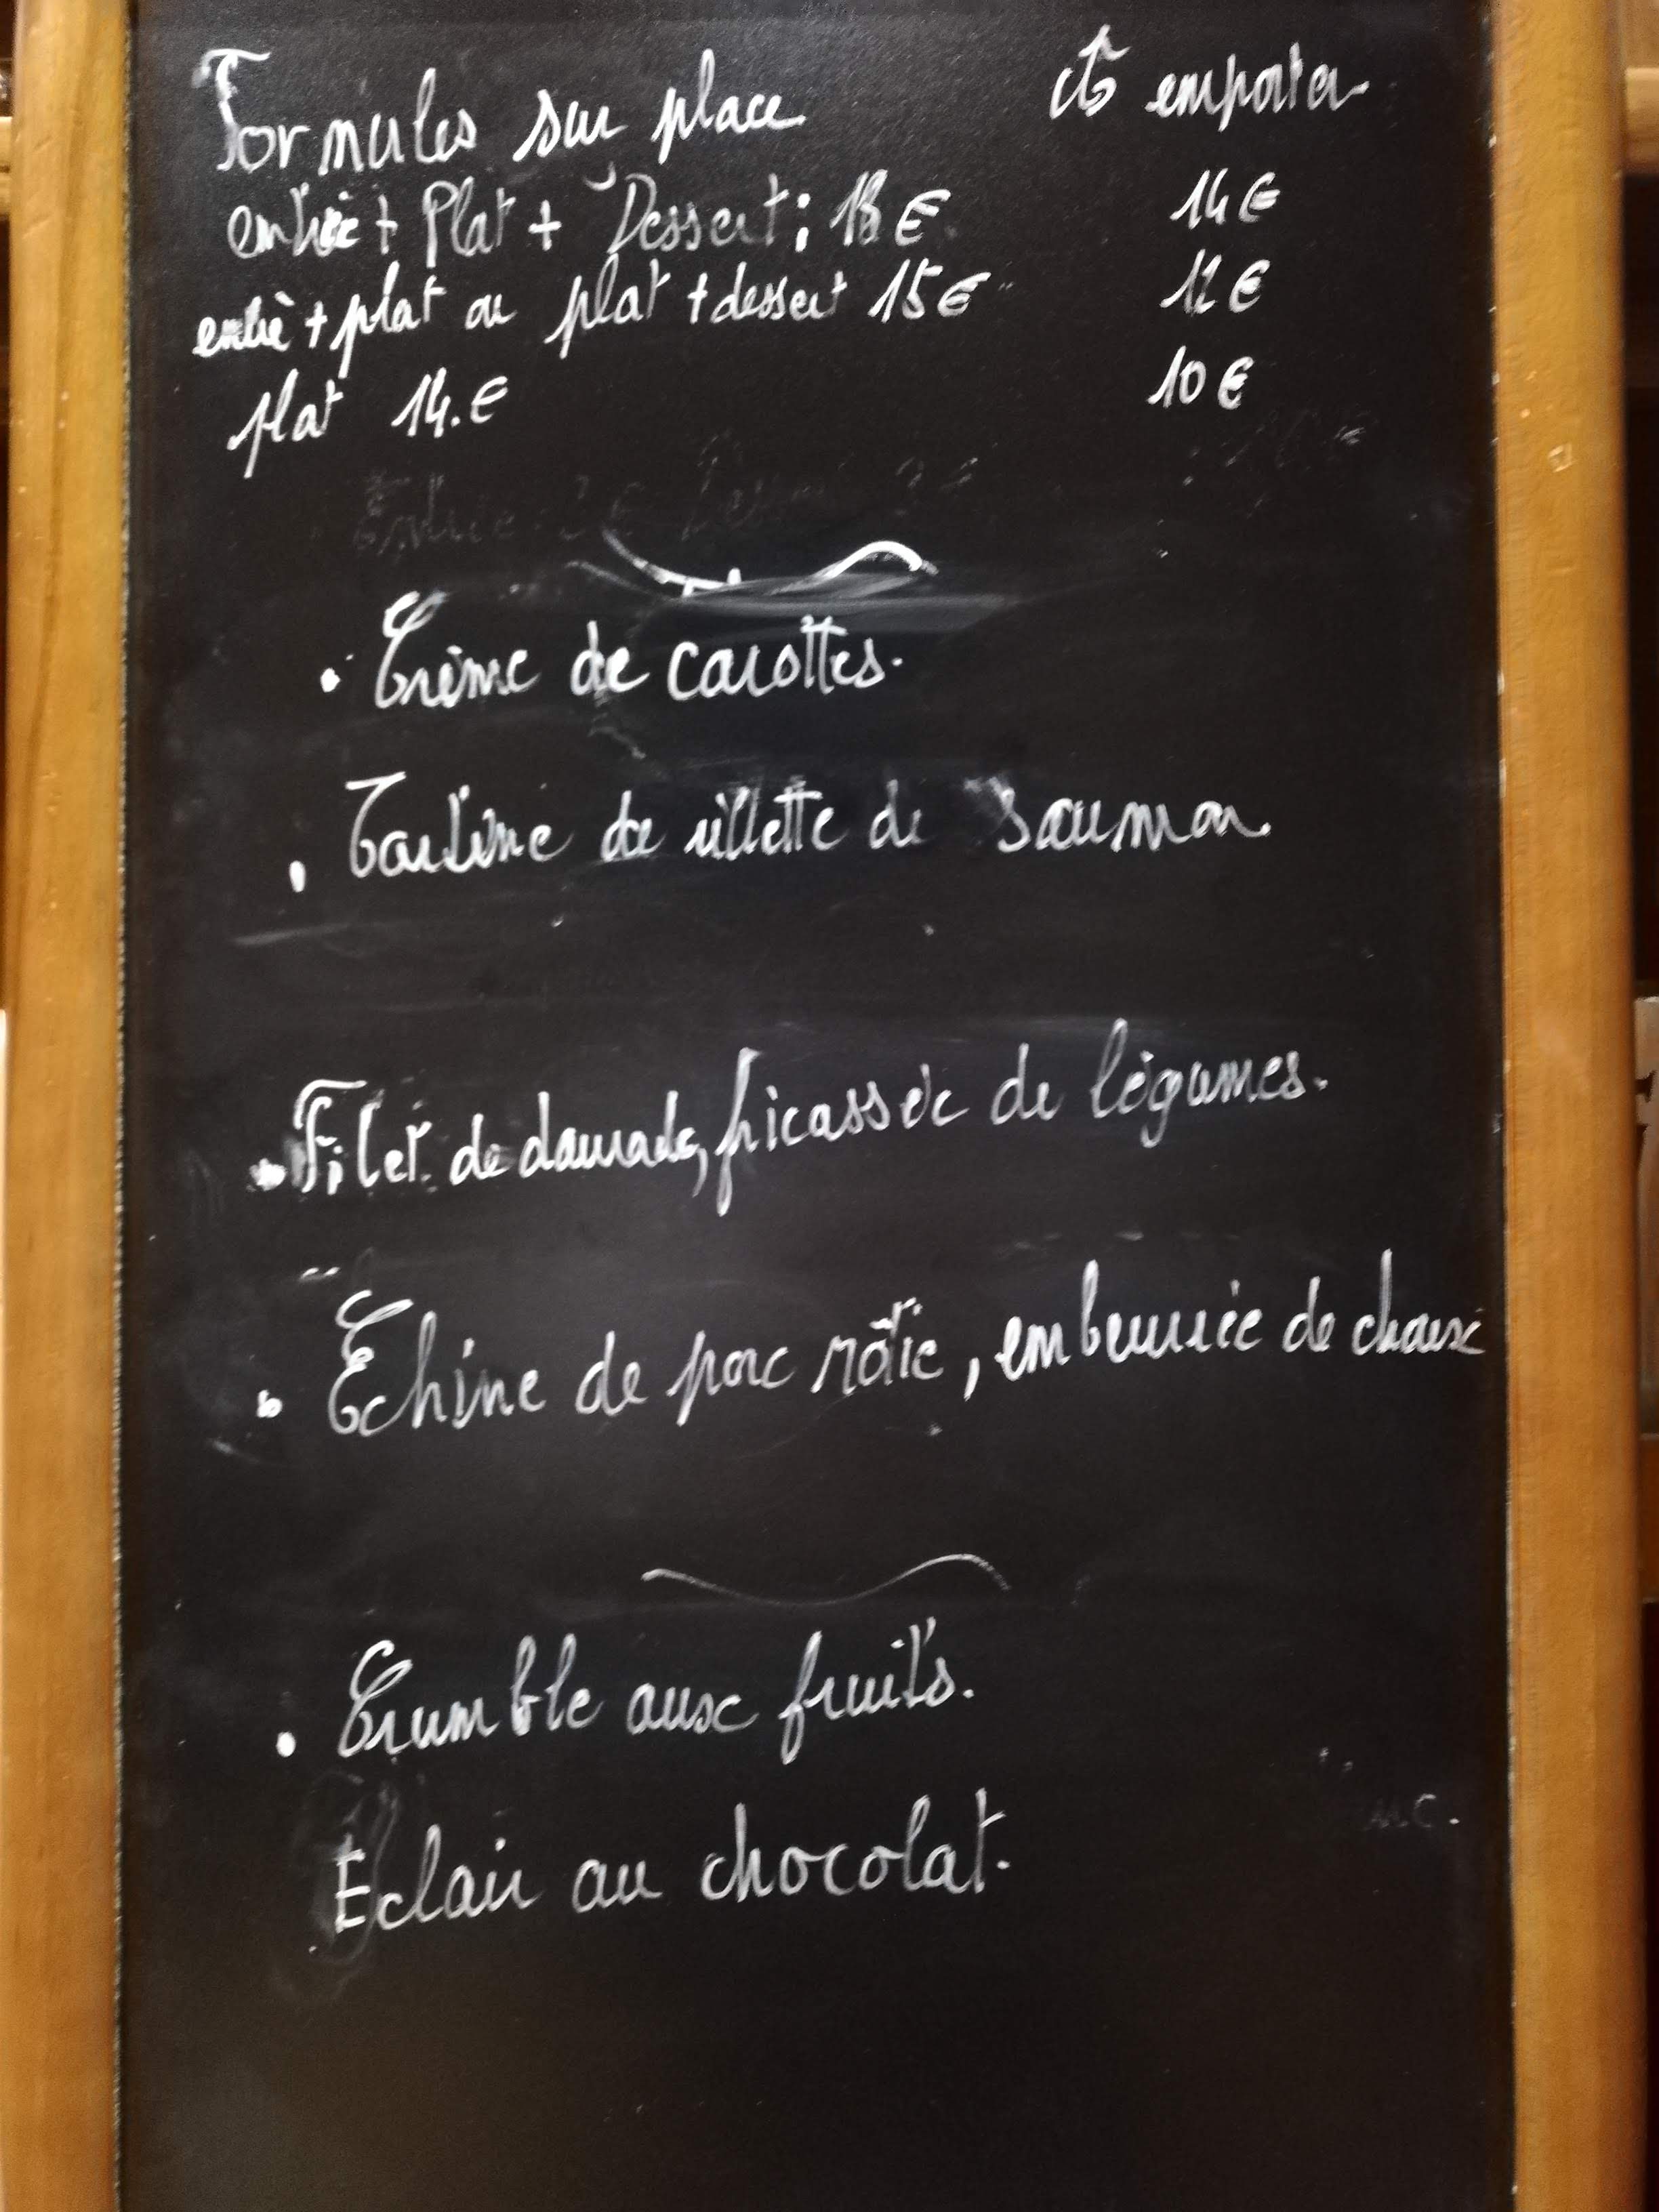 Formules sur place
à emporter
entrée + Plat + Dessert : 18€
14€
entrée + plat ou plat + dessert 15€
12€
plat 14.€
10€
• Crème de carottes.
• Tartine de rillette de Saumon
• Filet de daurade, fricassée de légumes.
• Echine de porc rôtie, embeurrée de choux
• Crumble aux fruits.
Eclair au chocolat.